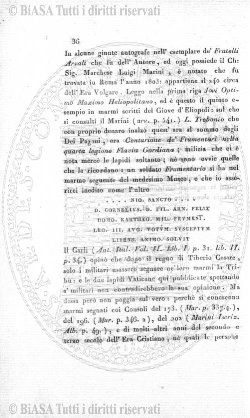 © BiASA Tutti i diritti riservati
36
In alcune giunte autografe nell' esemplare de' Fratelli
Arvali che fu dell' Autore, ed oggi possiede il Ch.
Sig. Marchese Luigi Marini, è notato che fu
trovata in Roma l' anno 1803: appartiene al 240 circa
dell' Era Volgare. Leggo nella prima riga Iovi Opti-
mo Maximo Heliopolitano, ed è questo il quinto e-
sempio in marmi scritti del Giove d' Eliopoli: sul che
si consulti il Marini (Arv. p. 541). L. Trofonio che
con proprio denaro inalzò quest' ara al sommo degli
Dei Pagani, era Centurione de' Frumentarii nella
quarta legione Flavia Gordiana: milizia che ci è
nota mercè le lapidi soltanto; nè sono ovvie quelle
che la ricordano: un soldato Frumentario si ha nel
marmo seguente del medesimo Museo, e che io aso-
ritti inedito come l' altro
. . . . . . NIO. SANCTO . . . .
D. CORNELIVS. D. FIL. ARN. FELIX
DOMO. KARTHAG. MIL. FRVMENT.
LEG. III. AVG. VOTVM. SVSCEPTVM
LIBENS. ANIMO. SOLVIT
Il Carli (Ant. Ital. Vol. II. Lib. I. p. 31. lib. II.
p. 34.) opina che dopo il regno di Tiberio Cesare,
solo i militari usassero segnare ne' loro marmi la Tri-
bù: e le due lapidi Vaticane qui pubblicate spettando
a' militari non contraddirebbero la sua opinione. Ma
dessa però non poggia sul vero: perchè si conoscono
marmi segnati coi Consoli del 173. (Mur. p. 337.4.),
del 196. (Mur. p. 346. 2), del 202 (Marini Iscriz.
Alb. p. 49.), e di molti altri anni del secondo e
terzo secolo dell' Era Cristiana, nè quali le persone
© BiASA Tutti i diritti riservati